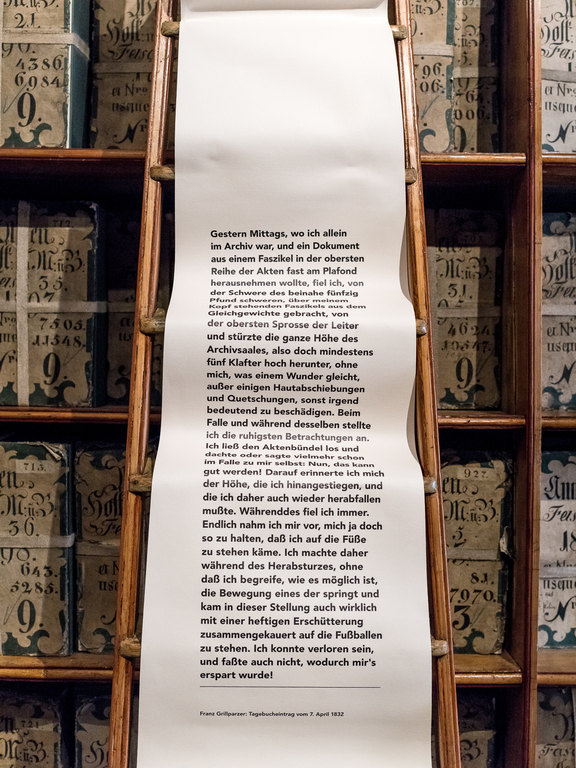 Gestern Mittags, wo ich allein
im Archiv war, und ein Dokument
aus einem Faszikel in der obersten
Reihe der Akten fast am Plafond
herausnehmen wollte, fiel ich, von
der Schwere des beinahe fünfzig
Pfund schweren, über meinem
Kopf stehenden Faszikels aus dem
Gleichgewichte gebracht, von
der obersten Sprosse der Leiter
und stürzte die ganze Höhe des
Archivsaales, also doch mindestens
fünf Klafter hoch herunter, ohne
mich, was einem Wunder gleicht,
außer einigen Hautabschiebungen
und Quetschungen, sonst irgend
bedeutend zu beschädigen. Beim
Falle und während desselben stellte
ich die ruhigsten Betrachtungen an.
Ich ließ den Aktenbündel los und
dachte oder sagte vielmehr schon
im Falle zu mir selbst: Nun, das kann
gut werden! Darauf erinnerte ich mich
der Höhe, die ich hinangestiegen, und
die ich daher auch wieder herabfallen
mußte. Währenddes fiel ich immer.
Endlich nahm ich mir vor, mich ja doch
so zu halten, daß ich auf die Füße
zu stehen käme. Ich machte daher
während des Herabsturzes, ohne
daß ich begreife, wie es möglich ist,
die Bewegung eines der springt und
kam in dieser Stellung auch wirklich
mit einer heftigen Erschütterung
zusammengekauert auf die Fußballen
zu stehen. Ich konnte verloren sein,
und faßte auch nicht, wodurch mir's
erspart wurde!
Franz Grillparzer: Tagebucheintrag vom 7. April 1832
4386.
6984.
9
713.
36.
643.
5285.
9
96.
06.
35.
7505.
9
4624.
9
927.
81.
7970.
3.